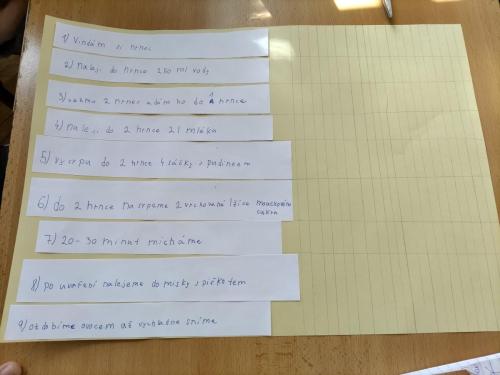 1) Vindám si hrnec
2) naleji do hrnce 250 ml vody
3) vezmu 2 hrnec a dám ho do 1 hrnce
4) naleji do 2 hrnce 2 l mléka
5) vysypu do 2 hrnce 4 sáčky s pudinkem
6) do 2 hrnce nasypeme 2 vrchovaté lžíce moučkového
cukru
7) 20-30 minut mícháme
8) po uvaření nalejeme do misky s piškotem
9) ozdobíme ovocem až vychladne sníme